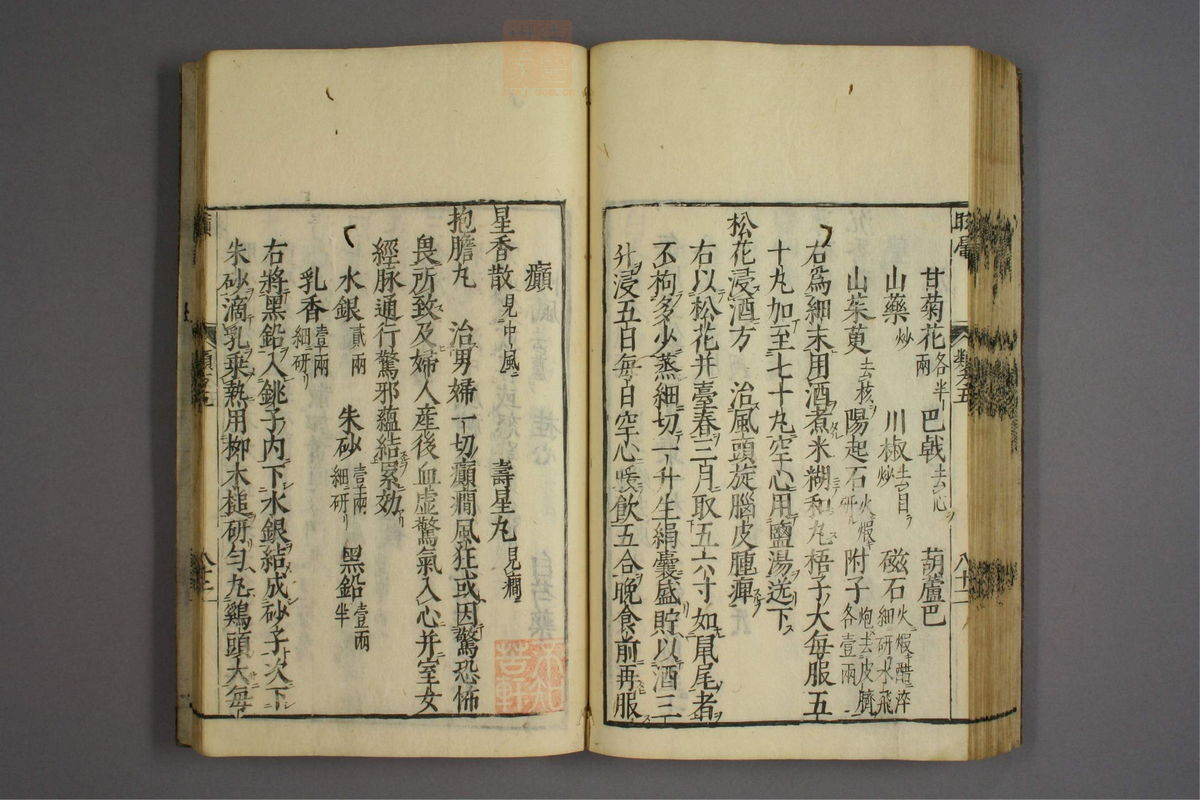 甘菊花各半兩 巴戟去心 葫蘆巴
山藥炒 川椒去目炒 磁石火煆醋淬細研水飛
山茱萸去核 陽起石火煆研 附子炮去皮臍各壹兩
右爲細末用酒煮米糊和丸梧子大每服五
十丸加至七十丸空心用鹽湯送下
松花浸酒方 治風頭旋腦皮腫痺
右以松花并臺春三月取五六寸如鼠尾者
不拘多少蒸細切一升生絹囊盛貯以酒三
升浸五日每日空心暖飲五合晚食前再服
癲
星香散見中風 壽星丸見癇
抱膽丸 治男婦一切癲癇風狂或因驚恐怖
畏所致及婦人産後血虛驚氣入心并室女
經脉通行驚邪蘊結累効
水銀貳兩 朱砂壹兩細研 黑鉛壹兩半
乳香壹兩細研
右將黑鉛入銚子内下水銀結成砂子次下
朱砂滴乳乘熱用柳木槌研勻丸鷄頭大每